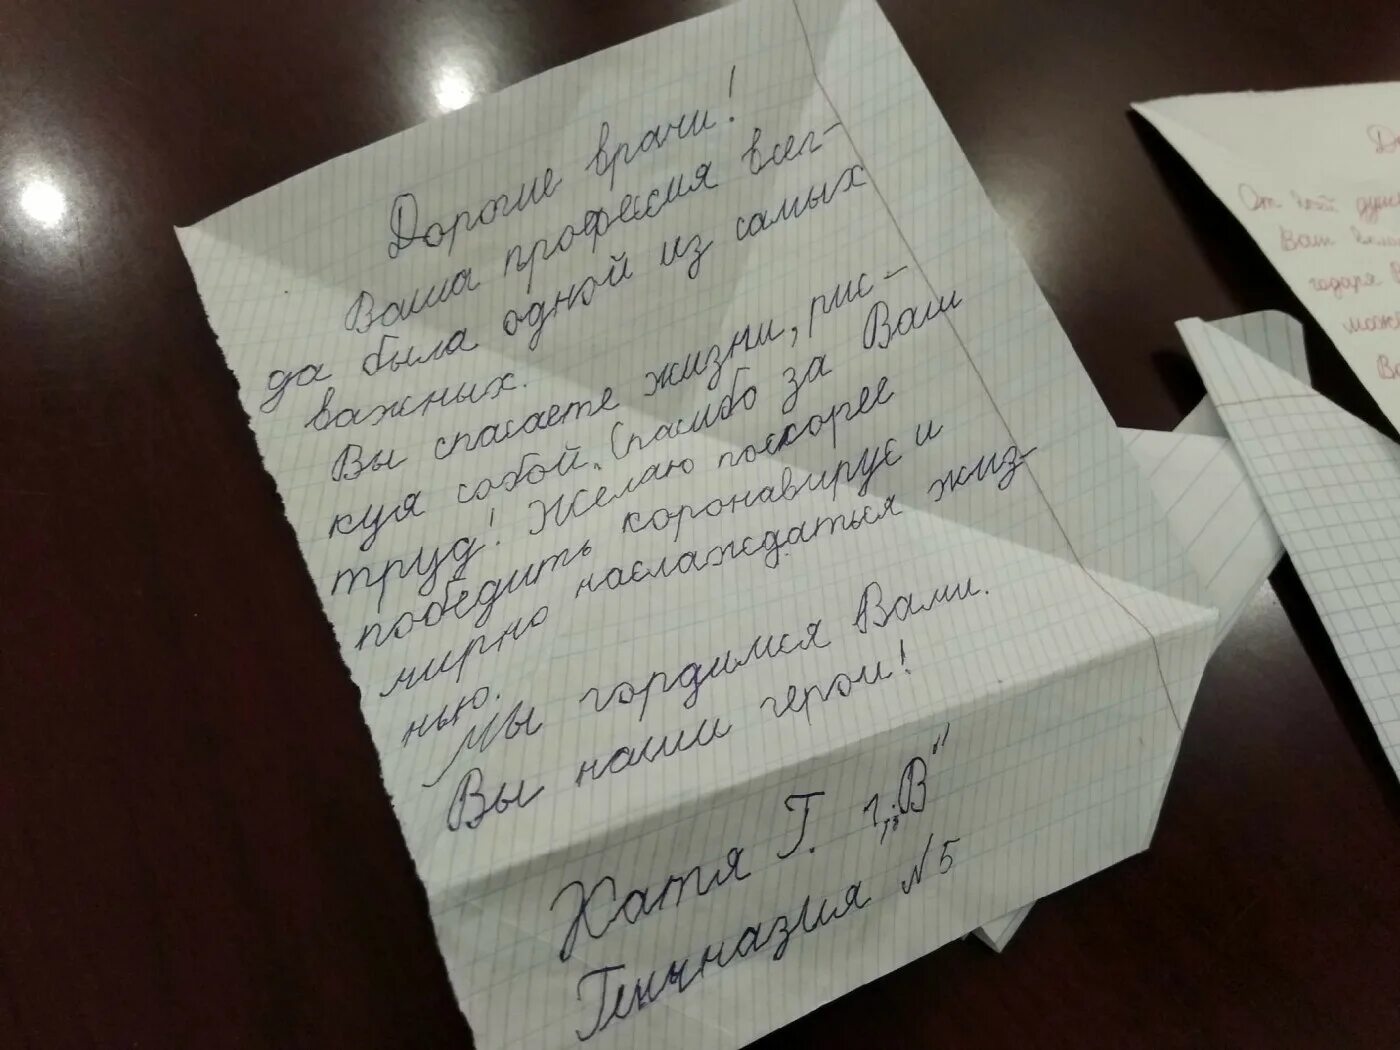 Дорогие врачи!
Ваша профессия всег-
да была одной из самых
важных.
Вы спасаете жизни, рис-
куя собой. Спасибо за Ваш
труд! Желаю поскорее
победить коронавирус и
мирно наслаждаться жиз-
нью.
Мы гордимся Вами.
Вы наши герои!
Катя Г. 1 „В"
Гимназия №5
От всей
Ваш
годаря